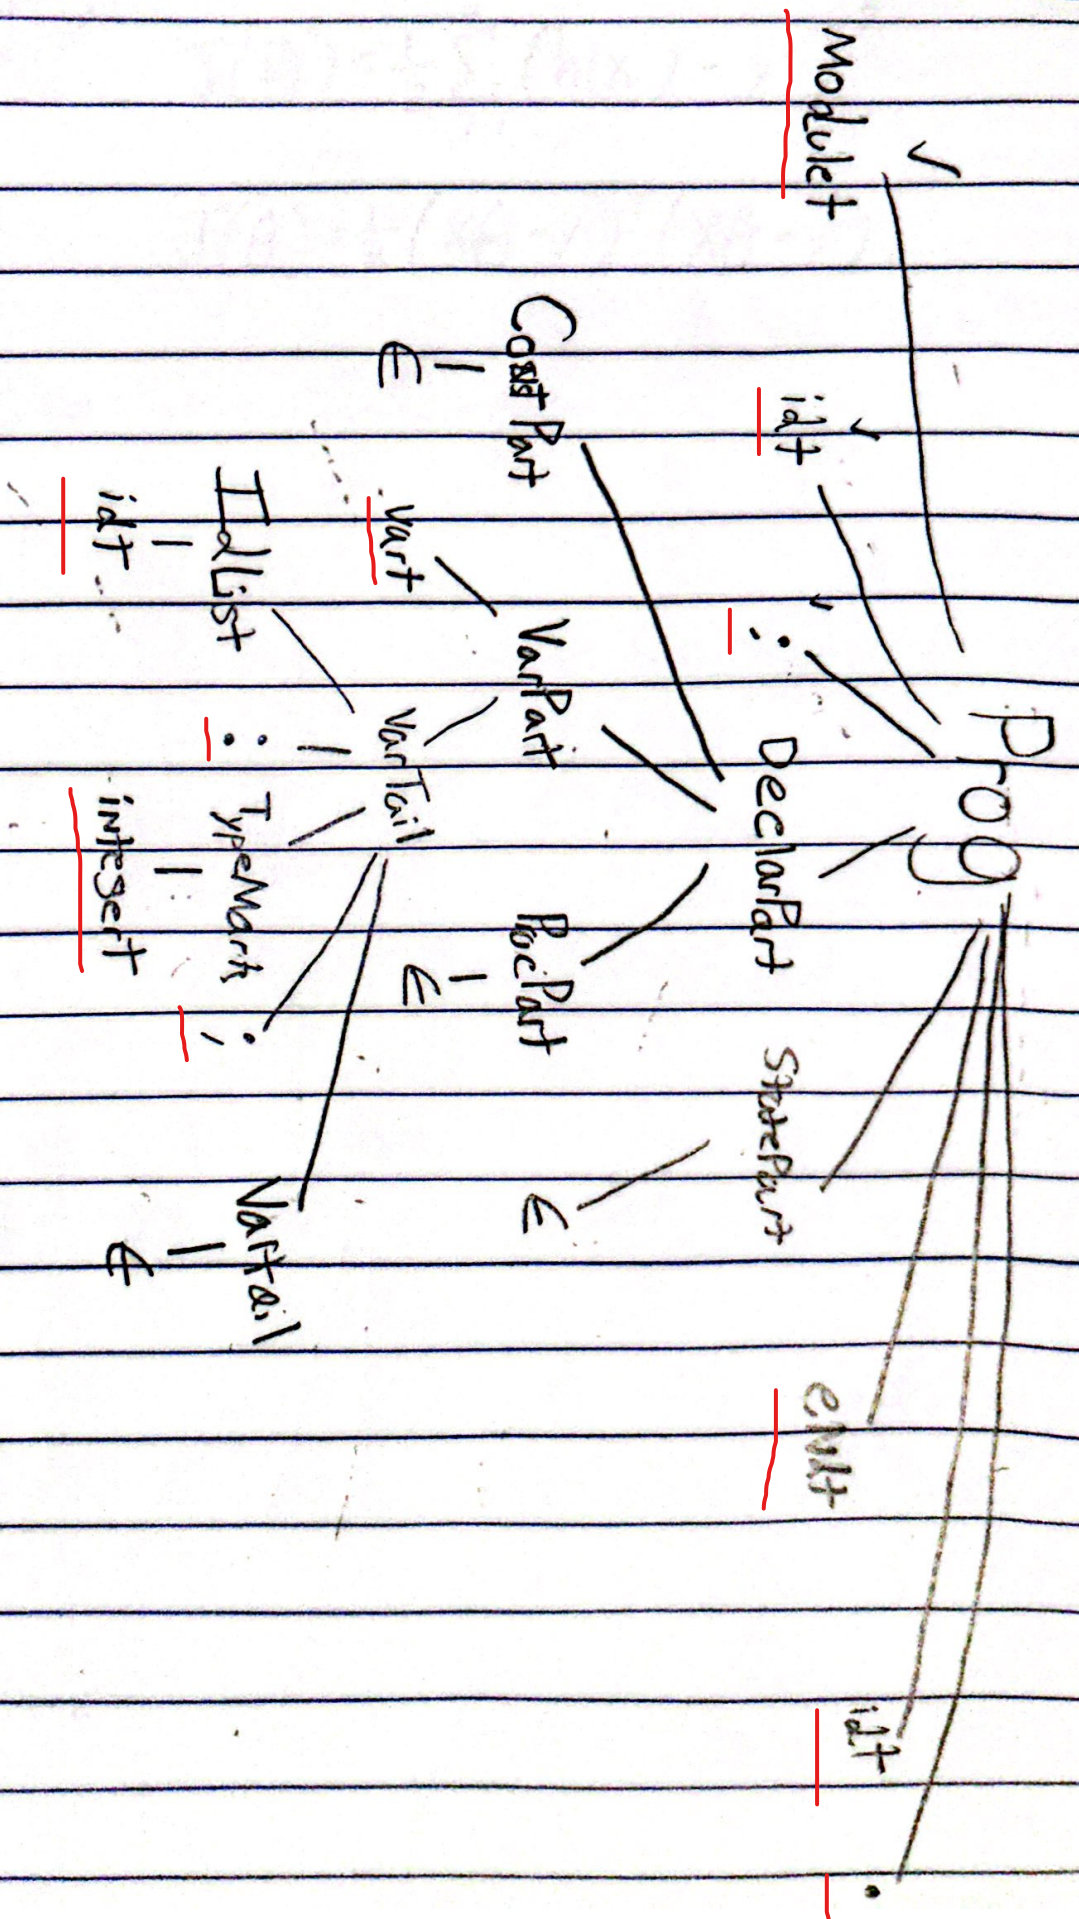 Prog
✓ ✓ ✓
Modulet idt ; DeclarPart StatePart endt idt .
ConstPart VarPart ProcPart ∈
∈ vart VarTail ∈
IdList : TypeMark ; Vartail
idt integert ∈